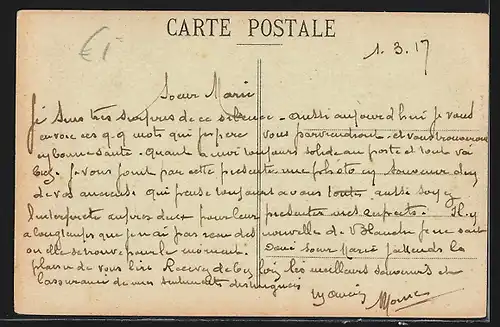 CARTE POSTALE
€ 1-
1.3.17
Soeur Marie
Je suis très surpris de ce silence - aussi aujourd'hui je vous
envoie ces q-q mots qui j'espère vous parviendront - et vous trouveront
en bonne santé. Quant a moi toujours solide au poste et tout va
bien. Je vous joint par cette présente une photo en souvenir d'un
de vos qui pense toujours a vous toutes aussi soyez
l'interprète auprès d'eux pour leur présenter mes respects. Il y
a longtemps que je n'ai pas reçu des nouvelle de Blanche je ne sait
ou elle se trouve pour le moment. Soeur Marie j'attends le
plaisir de vous lire Recevez de les meilleurs souvenirs et
l'assurance de mes sentiments distingués